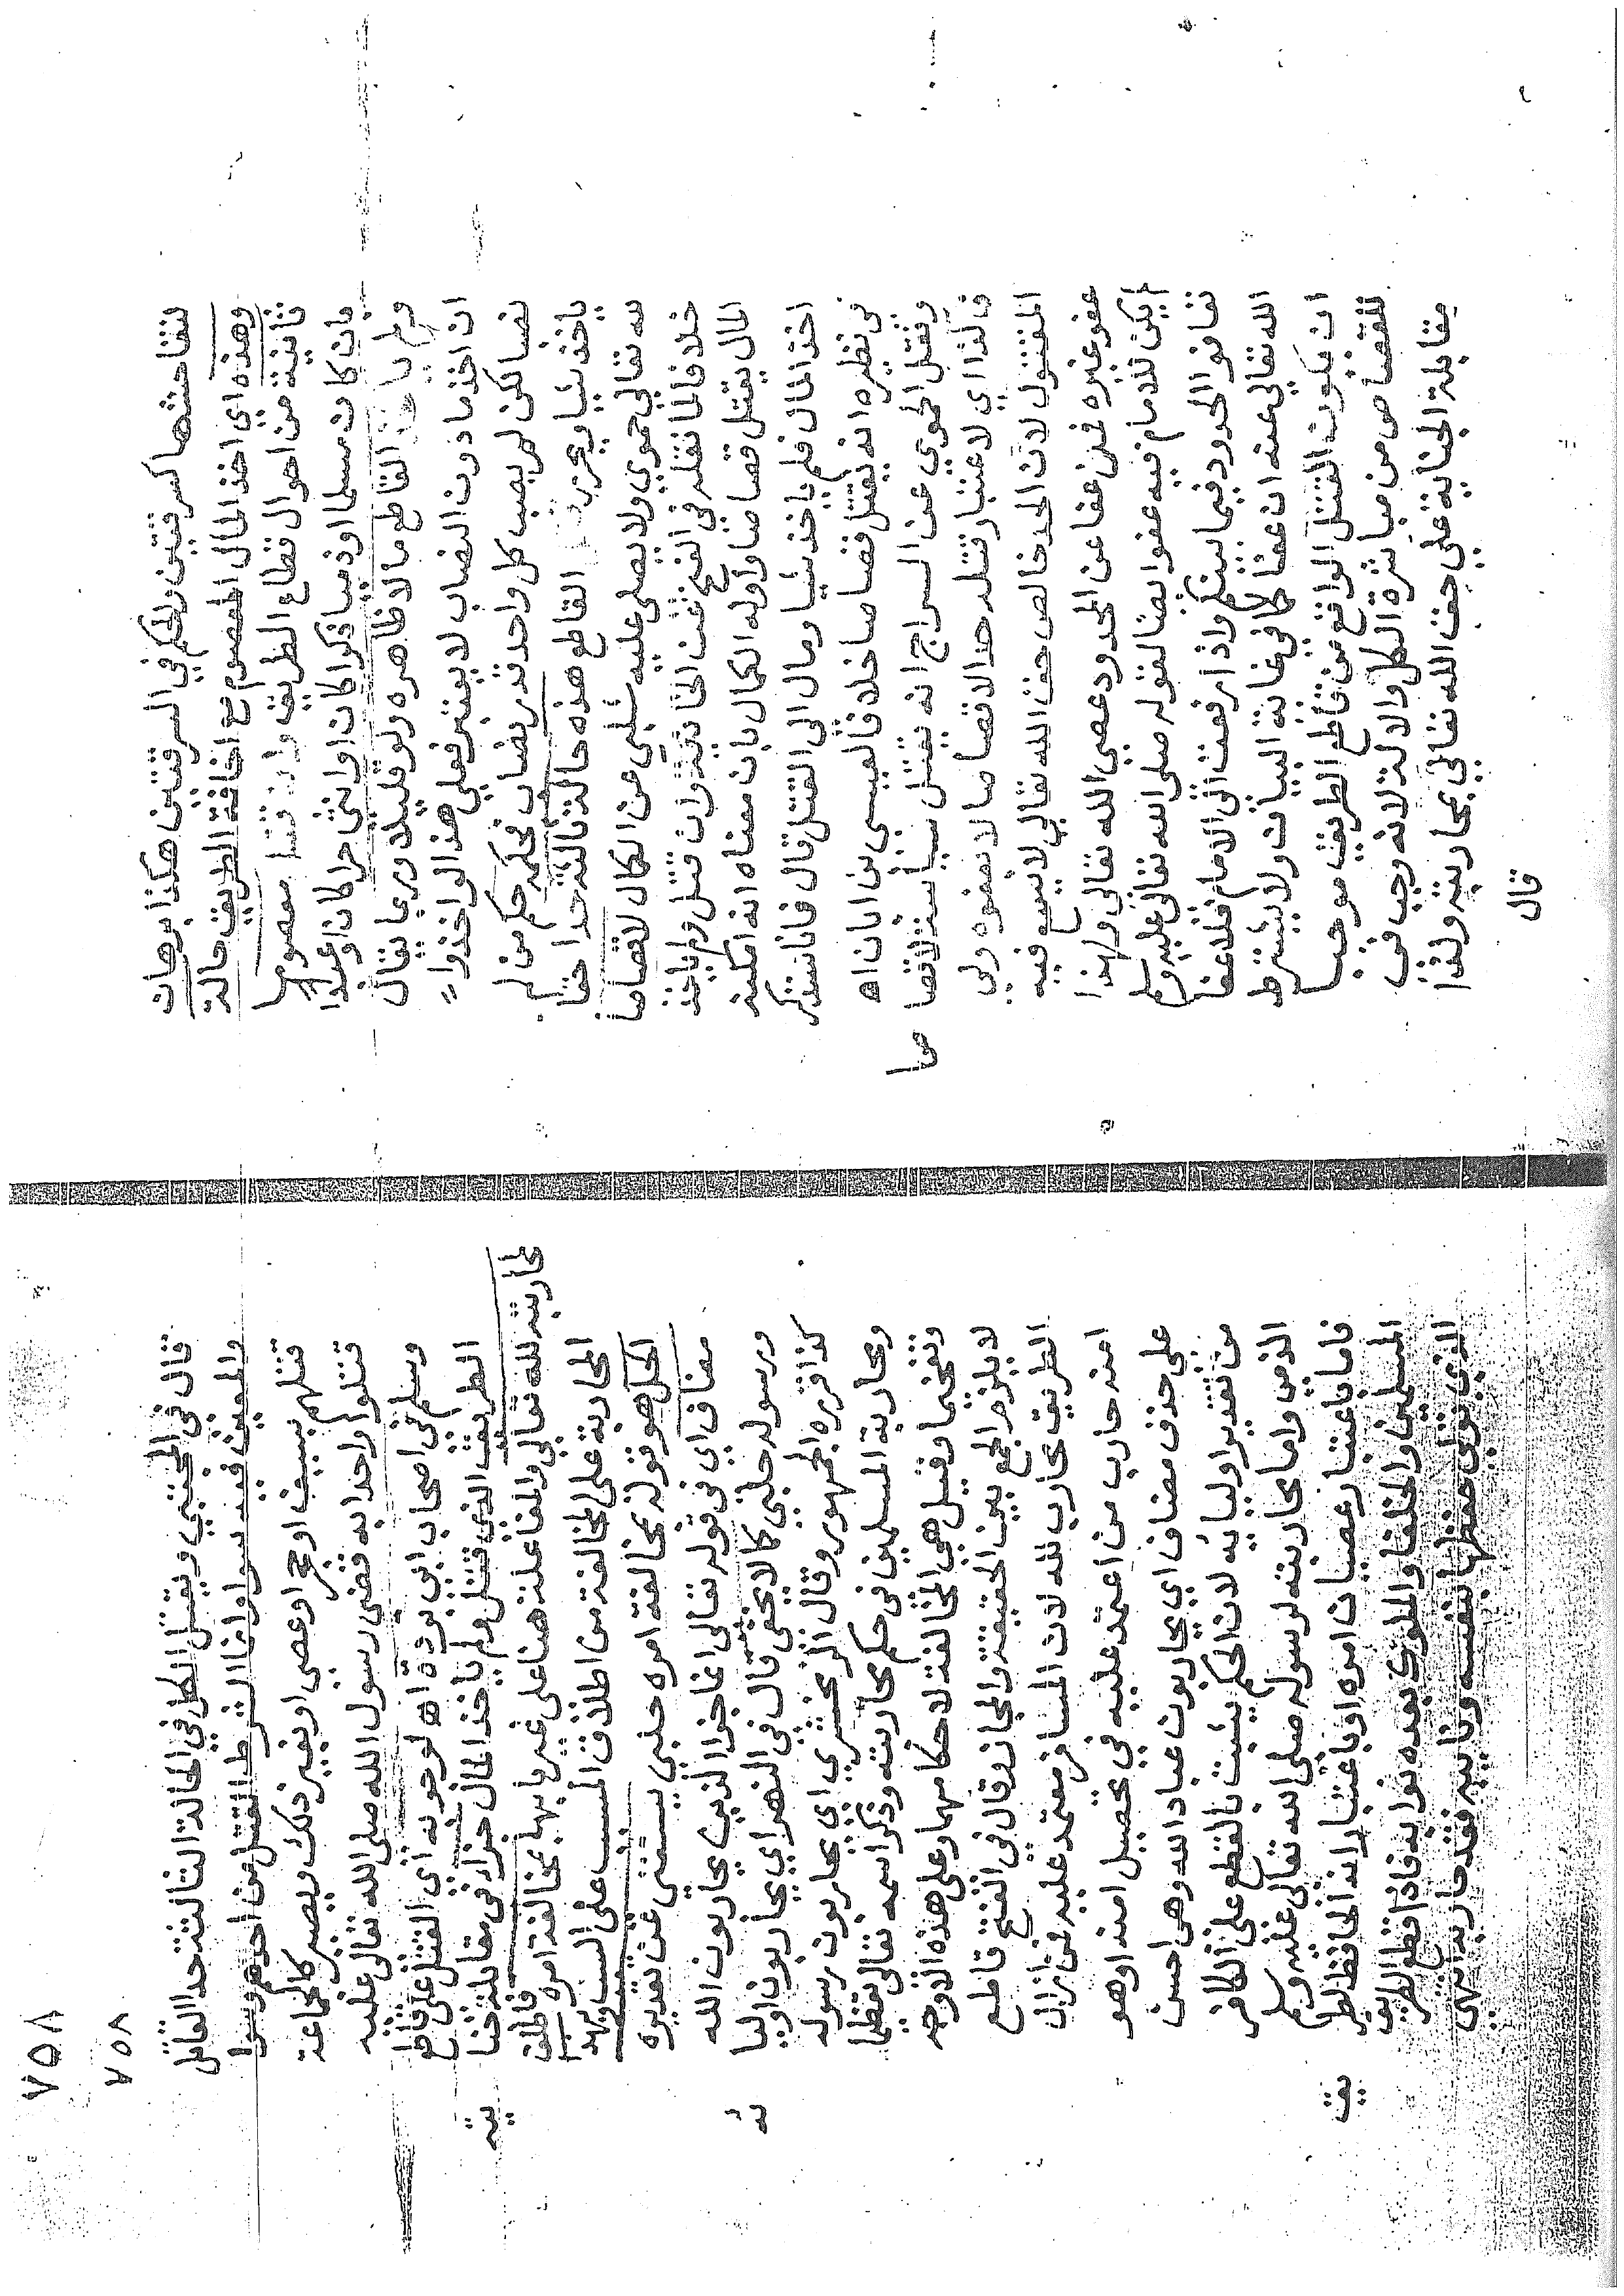 لتفاحشها كسرقتين والحكم في السرقتين هكذا برهان
وهذه اي اخذ المال المعصوم مع اخافة الطريق حالة
ثانية من احوال قطاع الطريق وان قتل معصوما
بان كان مسلما او ذميا ذكرا كان او انثى حرا كان او عبدا
ولم ياخذ القاطع مالا ظاهره ولو قليلا وربما يقال
ان اخذ ما دون النصاب لا يعتبر فعلي هذا لو اخذوا
نصابا لكن لم يصب كل واحد قدر نصاب فحكمه حكم من لم
ياخذ شيا ويحرر القاطع هذه حالة ثالثة حدا حقا
لله تعالى حموي ولا يصلى عليه شلبي عن الكمال لا قصاصا
خلافا لما نقله في الفتح عن الخانية وان قتل ولم ياخذ
المال يقتل قصاصا واوله الكمال بان معناه انه امكنه
اخذ المال فلم ياخذ شيا ومال الى القتل قال فانا سنذكر
في نظيره انه يقتل قصاصا خلافا لعيسى بن ابان اه
ونقل الحموي عن السراج انه يقتل سياسة لا قصاصا
ولذا اي لاعتبار قتله حدا لا قصاصا لا يعفوه ولي
المقتول لان الحد خالص حق الله تعالى لا يسع فيه
عفو غيره فمن عفا عن الحدود عصى الله تعالى ولهذا
لم يكن للامام فيه عفو ايضا لقوله صلى الله تعالى عليه وسلم
تعافوا الحدود فيما بينكم واذا رفعت الى الامام فلا عفا
الله تعالى عنه ان عفا كما في غاية البيان ولا يشترط
ان يكون القتل الواقع من قاطع الطريق موجبا
للقصاص من مباشرة الكل والالة لانه وجب في
مقابلة الجناية على حق الله تعالى بمحاربته ولذا
قال
٧٥٨
٧٥٨
قال في المجتبي ويقتل الكل في الحالة الثالثة حدا القاتل
والمعين فيه سوا وانما الشرط القتل من احدهم وسوا
قتلهم بسيف او حجر او عصى او بغير ذلك ويصير كالجماعة
قتلوا واحدا به قضى رسول الله صلى الله تعالى عليه
وسلم في اصحاب ابي بردة اه لوجوبه اي القتل على قاطع
الطريق الذي قتل ولم ياخذ المال جزاء في مقابلة جناية
لمحاربته لله تعالى والمفاعلة هنا على غير بابها بمخالفة امره فاطلق
المحاربة على المخالفة من اطلاق المسبب على السبب وبهذا
الحل هو قوله بمخالفة امره حلبي يستغني عن تقديره
مضاف اي في قوله تعالى انما جزا الذين يحاربون الله
ورسوله حلبي كما لا يخفى قال في النهر اي يحاربون اوليا له
كذا قرره الجمهور وقال الزمخشري اي يحاربون رسوله
ومحاربة المسلمين في حكم محاربته وذكر اسمه تعالى تعظيما
وتفخيما وقيل هي المخالفة لاحكامهما وعلى هذه الاوجه
لا يلزم الجمع بين الحقيقة والمجاز وقال في الفتح قاطع
الطريق محارب لله لان المسافر معتمد عليه فمن ازال
امنه حارب من اعتمد عليه في تحصيل امنه او هو
على حذف مضاف اي يحاربون عباد الله وهي احسن
من تقديرا وليائه لان الحكم يثبت بالقطع على الكافر
الذمي واما محاربته لرسوله صلى الله تعالى عليه وسلم
فاما باعتبار عصيان امره او باعتبار انه الحافظ لطريق
المسلمين والخلفا والملوك بعده نوابه فاذا قطع الطريق
الذي تولى حفظها بنفسه ونايبه فقد حاربه انتهى